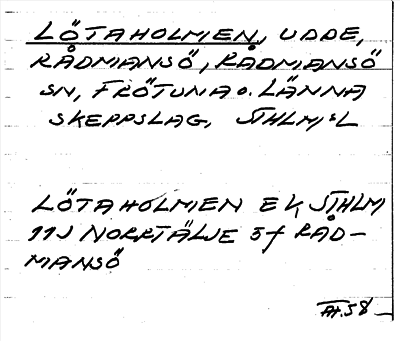 LÖTAHOLMEN, UDDE,
RÅDMANSÖ, RÅDMANSÖ
SN, FRÖTUNA O. LÄNNA
SKEPPSLAG, STHLMS L
LÖTAHOLMEN EK, STHLM
11J NORRTÄLJE 5f RÅD-
MANSÖ